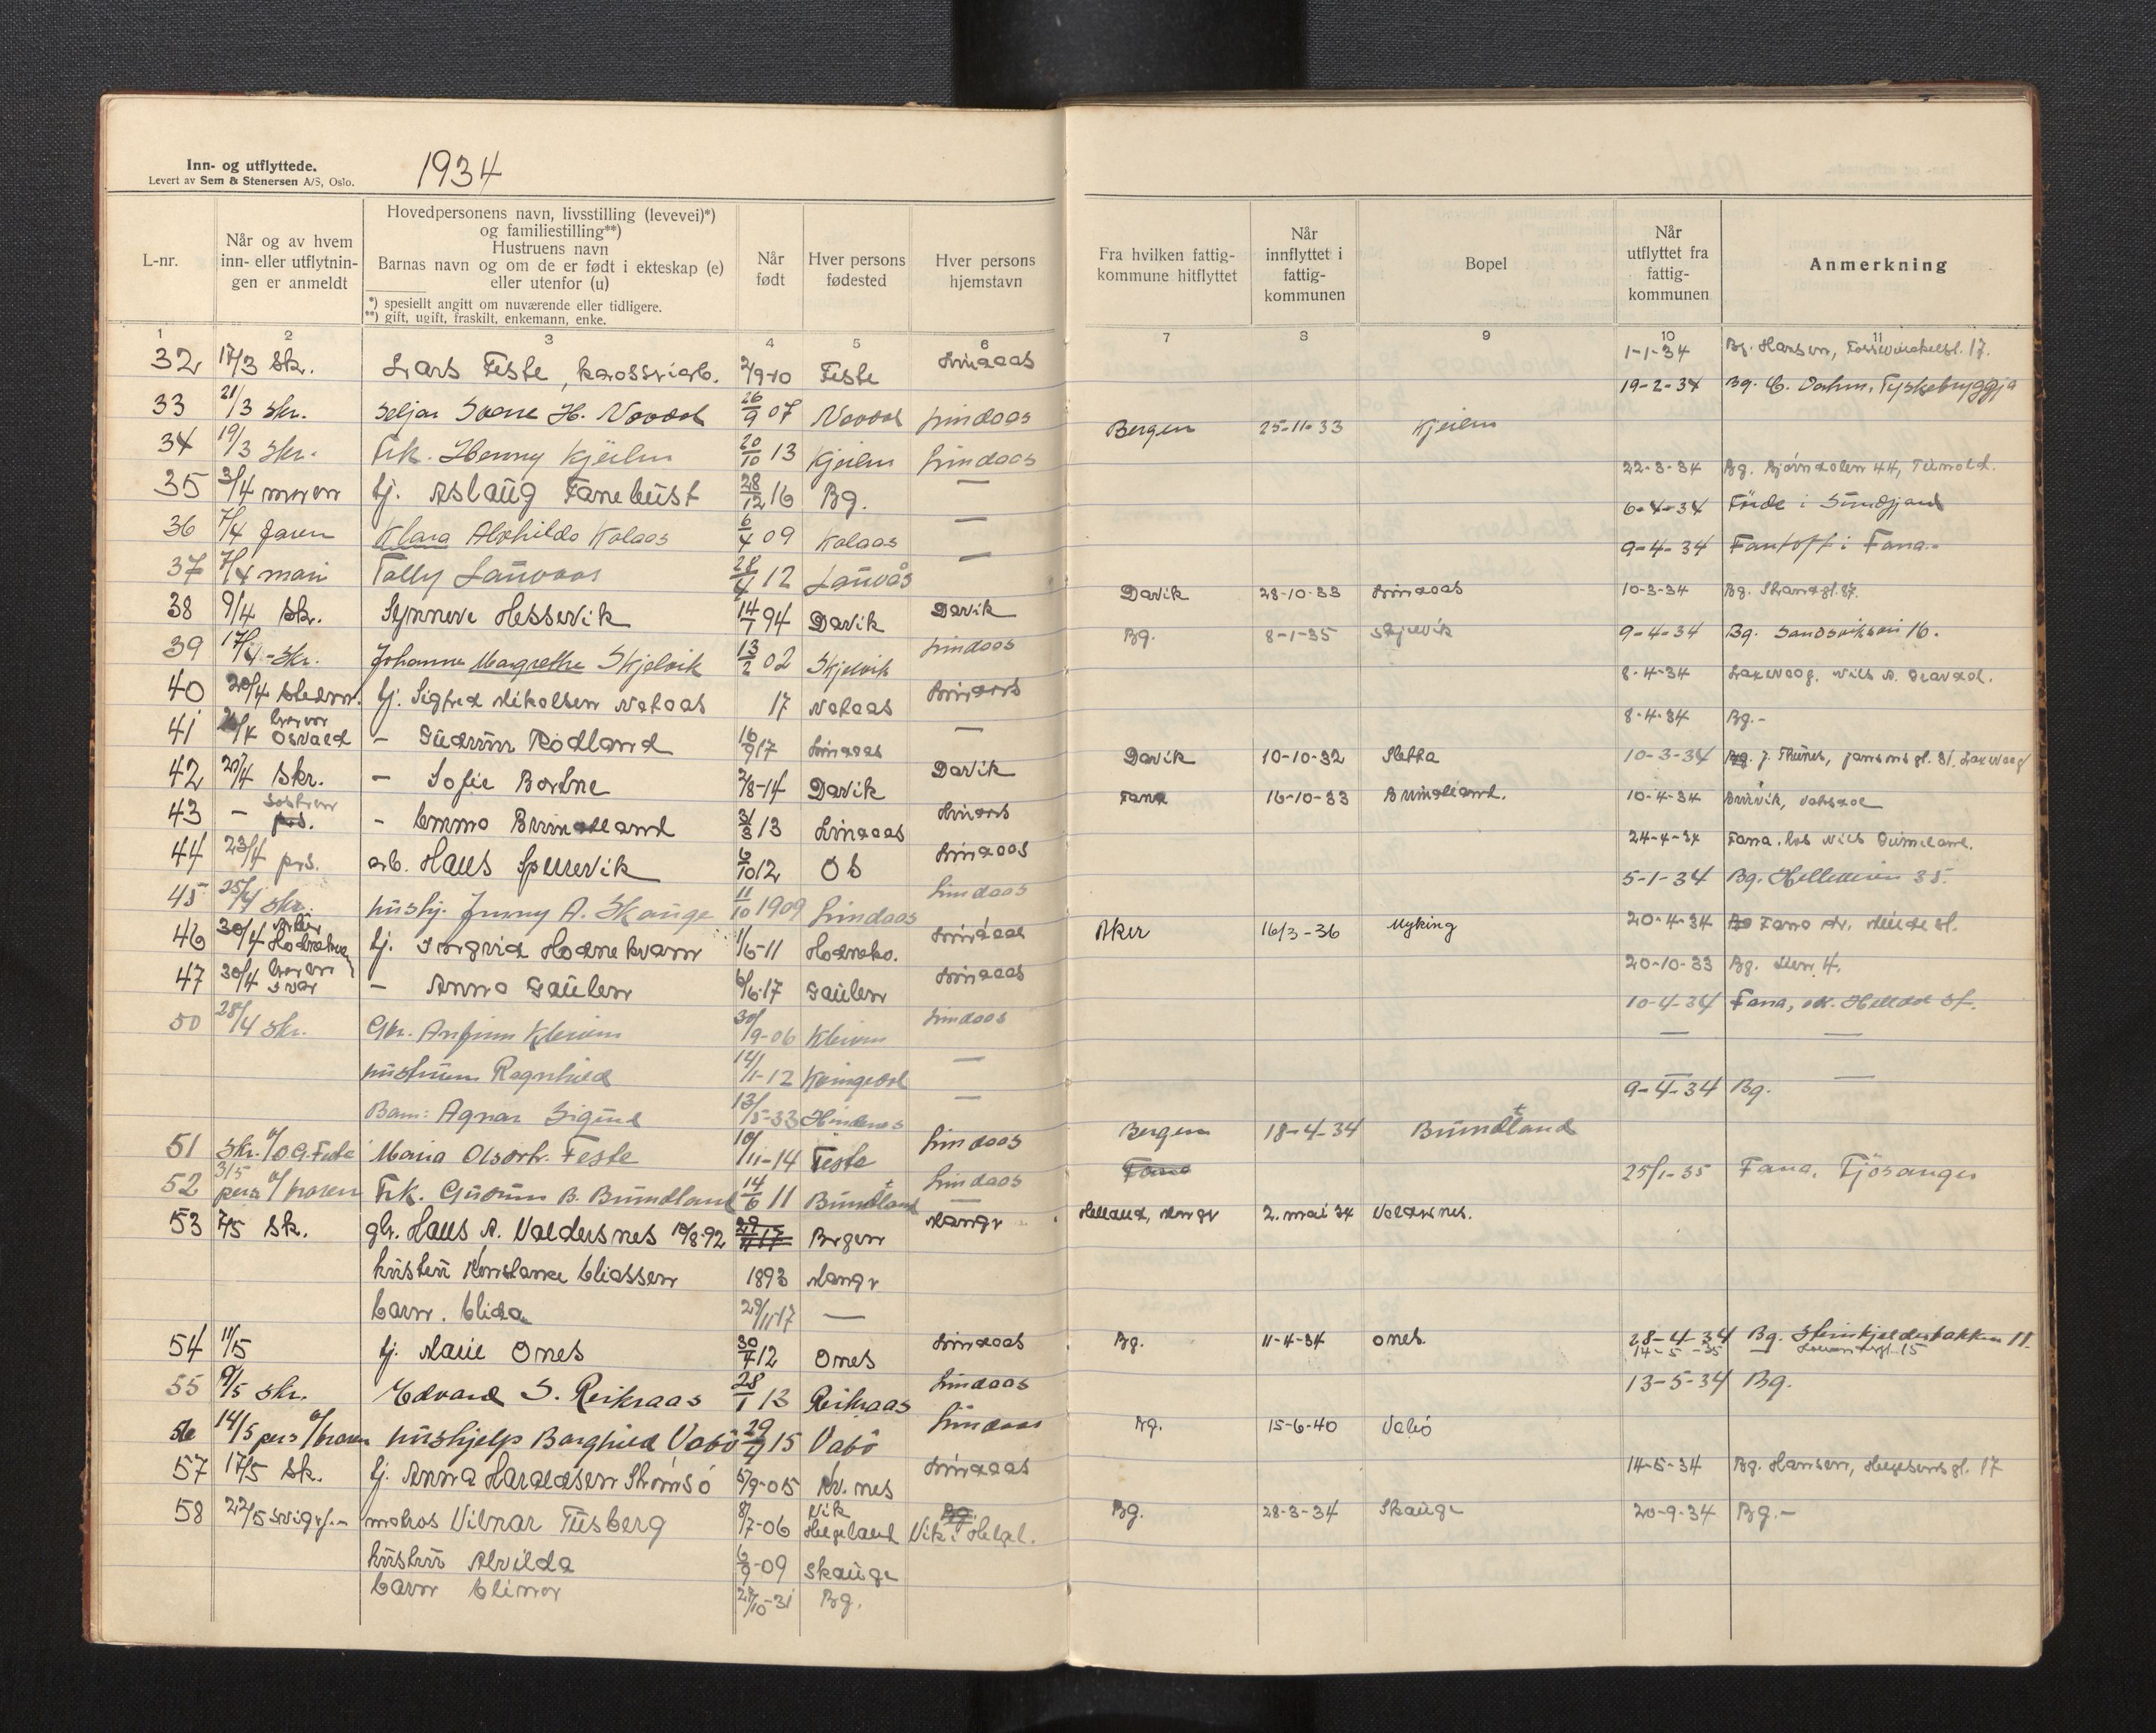 Inn- og utflyttede.
Levert av Sem & Stenersen A/S, Oslo.
1934
L-nr.
Når og av hvem
inn- eller utflytnin-
gen er anmeldt
Hovedpersonens navn, livsstilling (levevei)*)
og familiestilling**)
Hustruens navn
Barnas navn og om de er født i ekteskap (e)
eller utenfor (u)
*) spesiellt angitt om nuværende eller tidligere.
**) gift, ugift, fraskilt, enkemann, enke.
Når
født
Hver persons
fødested
Hver persons
hjemstavn
Fra hvilken fattig-
kommune hitflyttet
Når
innflyttet i
fattig-
kommunen
Bopel
Når
utflyttet fra
fattig-
kommunen
Anmerkning
1 2 3 4 5 6 7 8 9 10 11
32 17/3 Sk. Lars Feste, 2/9-10 Feste Lindaas 1-1-34 Bg. Hansen, 17.
33 21/3 Skr. Seljar H. 26/9 07 Lindaas 19-2-34 Bg. Tyskebryggja
34 19/3 Skr. Frk. Henny Kjeilen 20/10 13 Kjeilen Lindaas Bergen 25-11-33 Kjeilen
35 3/4 moren tj. Aslaug Fanebust 28/12 16 Bg. — 22-3-34 Bg. Bjørndalen 44,
36 7/4 faren Klara Alvhilda Kolaas 6/4 09 Kolaas — 6-4-34 Førde i Sundfjord
37 7/4 mari Tally Lauvaas 28/4 12 Lauvås — 9-4-34 Fantoft i Fana.-
38 9/4 Sk. Synneve Hessevik 14/1 94 Davik Davik Davik 28-10-33 Lindaas 10-3-34 Bg. Strandgt. 87.
39 17/4 - Skr. Johanna Margrethe Skjelvik 13/2 02 Skjelvik Lindaas Bg. 8-1-35 Skjelvik 9-4-34 Bg. Sandviksvei 16.
40 20/4 tj. Sigfred Mikalsen Nataas 17 Nataas Lindaas 8-4-34 Laxevaag, Nils A.
41 Osvald - Gudrun Rödland 16/9 17 Lindaas — 8-4-34 Bg.-
42 20/4 Skr. - Sofie Bortne 2/8-14 Davik Davik Davik 10-10-32 Sletta 10-3-34 Bg. J. Thunes, gt. 31, Laxevaag
43 - søsteren prs. - Emma Brundtland 31/3 13 Lindaas Lindaas Fana 16-10-33 Brundtland. 10-4-34
44 23/4 prs. arb. Haus Spurevik 6/10 12 Os Lindaas 24-4-34 Fana. hos Nils
45 25/4 skr. hushj. Jenny A. Skauge 11/10 1909 Lindaas Lindaas 5-1-34 Bg. 35.
46 30/4 tj. Ingvid Hodnekvam 1/6-11 Hodnekv. Lindaas Aker 16/3-36 Myking 20-4-34 Fana
47 30/4 Ivar - Anna Gaulen 6/6-17 Gaulen Lindaas 20-10-33 Bg. 4.
50 28/4 skr. Gbr. Anfinn Kleiven 30/9-06 Kleiven Lindaas 10-4-34 Fana,
hustruen Ragnhild 14/1-12 — — —
Barn: Agnar Sigurd 13/5-33 Hindenes — — —
9-4-34 Bg.
51 Skr. O. G. Feste Maria Olsdtr. Feste 10/11-14 Feste Lindaas Bergen 18-4-34 Brundtland
52 3/5 pers v/ broren Frk. Gudrun B. Brundtland 14/6 11 Brundtland Lindaas Fana 25/1-35 Fana, Fjøsanger
53 7/5 Sk. gbr. Haus A. Valdersnes 10/8-92 Bergen Mangr Helland, Mangr 2. mai 34 Valdersnes.
hustru Konstanse Eliassen 1893 Mangr
barn. Elida 29/11 17 —
54 11/5 tj. Marie Ones 30/7 12 Ones Lindaas Bg. 11-4-34 Ones. 28-4-34 Bg. Steinkjelderbakken 11.
14-5-35 15
55 9/5 skr. Edvard S. Reikraas 28/1 13 Reikraas Lindaas 13-5-34 Bg.
56 14/5 pers v/ broren hushjelp Borghild Vabø 29/4 15 Vabø Lindaas Bg. 15-6-40 Vabø
57 17/5 Sk. tj. Anna Haraldsen Strømsø 5/9-05 Kv. nes Lindaas 14-5-34 Bg. Hansen, Helgesensgt. 17
58 22/5 matros Vilnar Tusberg 8/7-06 Vik Helgeland Bg. Vik i Helgel. Bg. 28-3-34 Skauge 20-9-34 Bg.-
hustru Alvilda 6/9-09 Skauge
barn Elinor 27/10-31 Bg.